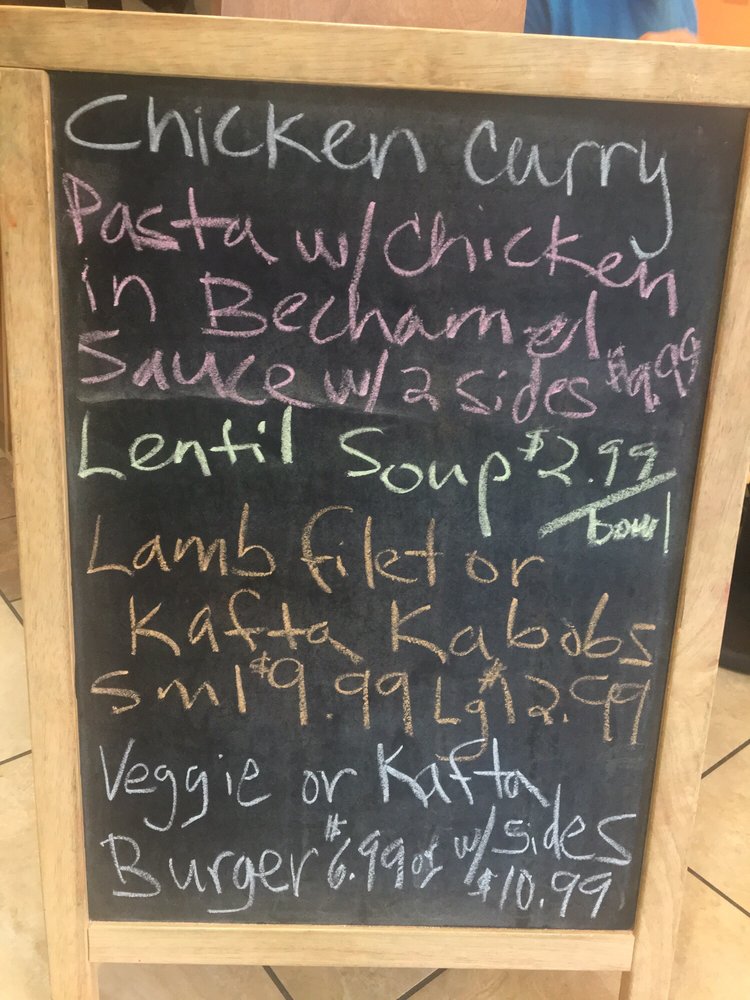 Chicken Curry
Pasta w/ Chicken
in Bechamel
Sauce w/ 2 sides $9.99
Lentil Soup $2.99
/bowl
Lamb filet or
Kafta Kabobs
Sml $9.99 Lg $12.99
Veggie or Kafta
Burger $6.99 or w/ sides
$10.99